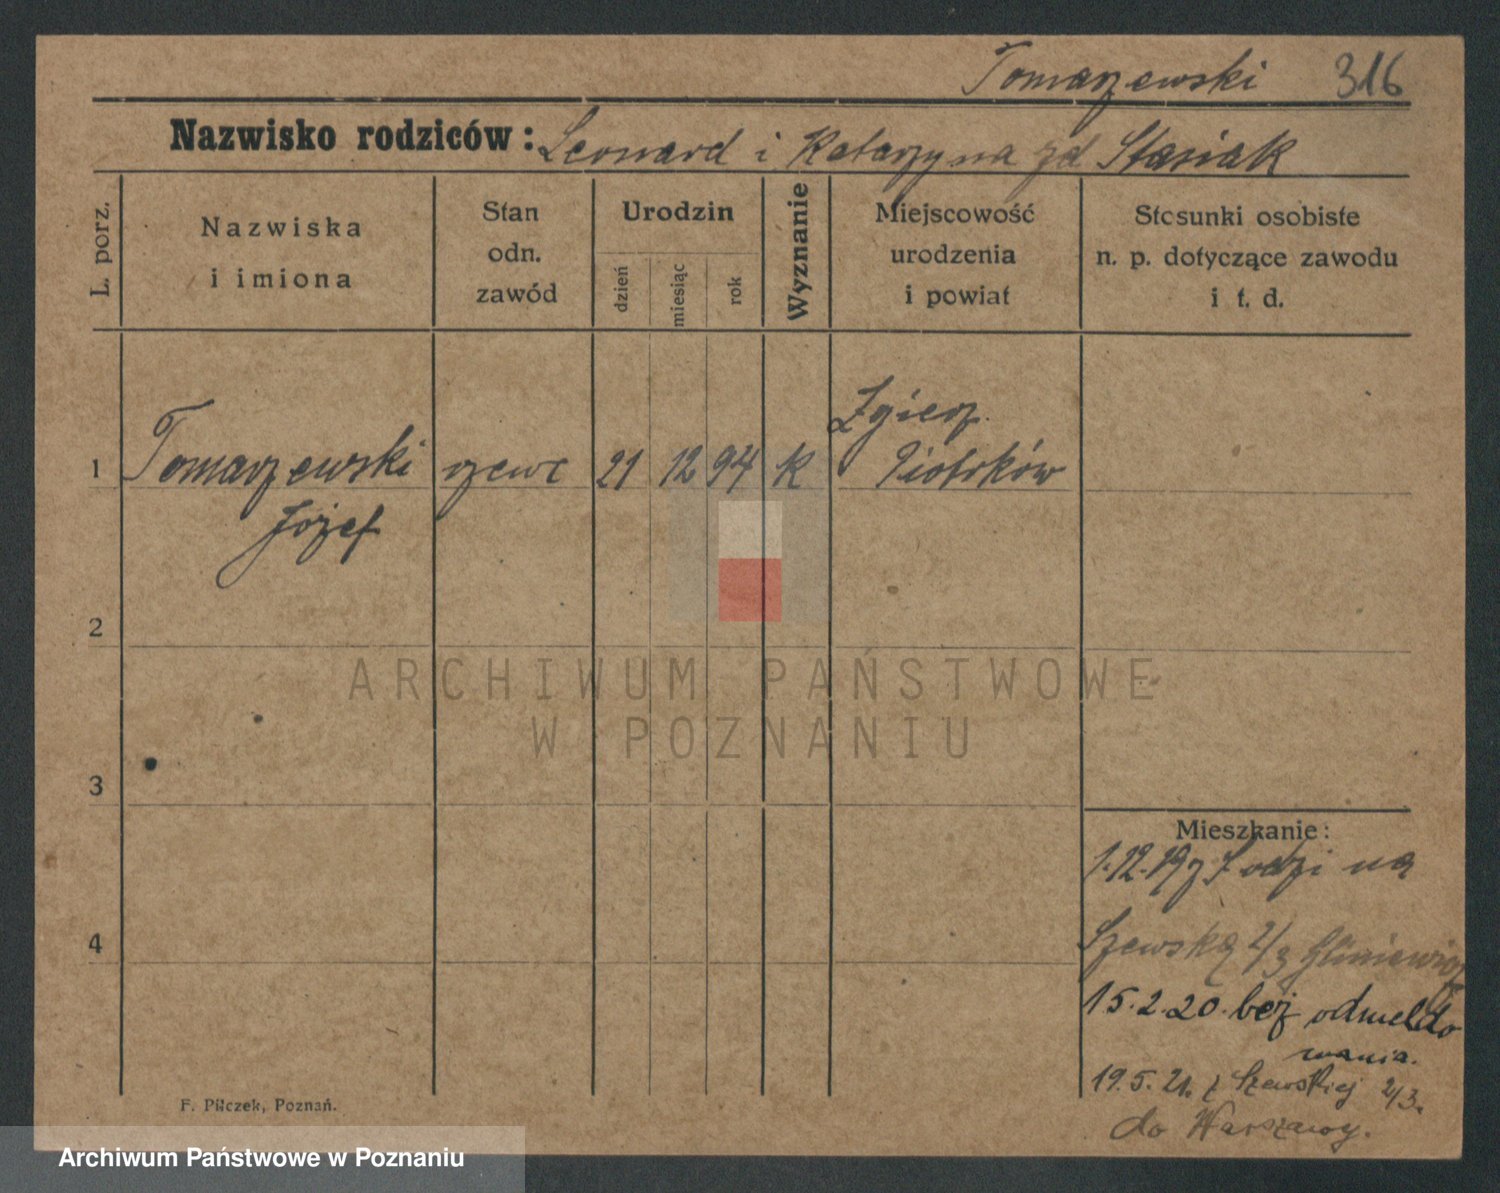 Tomaszewski 316
Nazwisko rodziców: Leonard i Katarzyna zd Stasiak
L. porz.
Nazwiska
i imiona
Stan
odn.
zawód
Urodzin
dzień
miesiąc
rok
Wyznanie
Miejscowość
urodzenia
i powiat
Stosunki osobiste
n. p. dotyczące zawodu
i t. d.
Zgierz
1 Tomaszewski szewc 21 12 94 k Piotrków
Józef
2
ARCHIWUM PAŃSTWOWE
W POZNANIU
3
Mieszkanie:
1.12.19 z Łodzi na
4
Szewską 2/3
15.2.20. bez odmeldo
wania.
19.5.21. z Szewskiej 2/3.
do Warszawy.
F. Pilczek, Poznań.
Archiwum Państwowe w Poznaniu